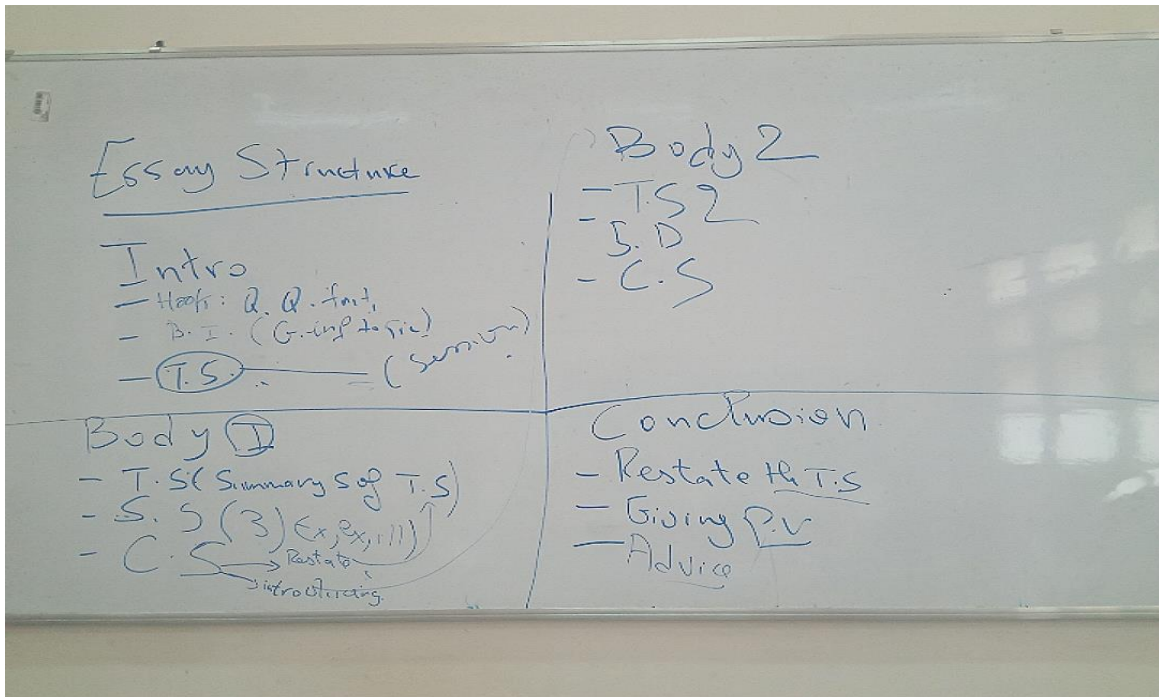 Essay Structure
Intro
- Hook: Q. Q. fact,
- B.I. (G. inf topic)
- T.S. (Session)
Body I
- T.S (Summary S of T.S)
- S. S (3) Ex, ex, ill)
- C. S
Restate
introducing
Body 2
- T.S 2
- S. D
- C. S
Conclusion
- Restate the T.S
- Giving P.V
- Advice